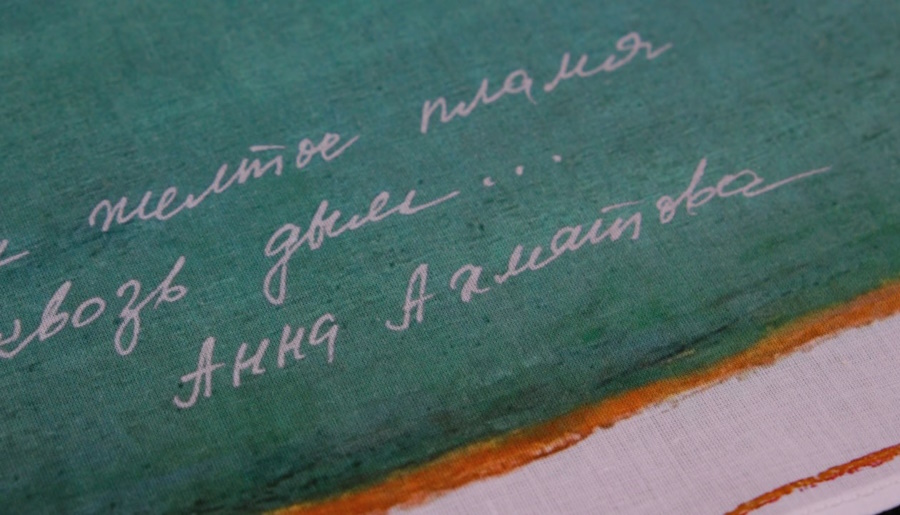 желтое пламя
сквозь дым...
Анна Ахматова